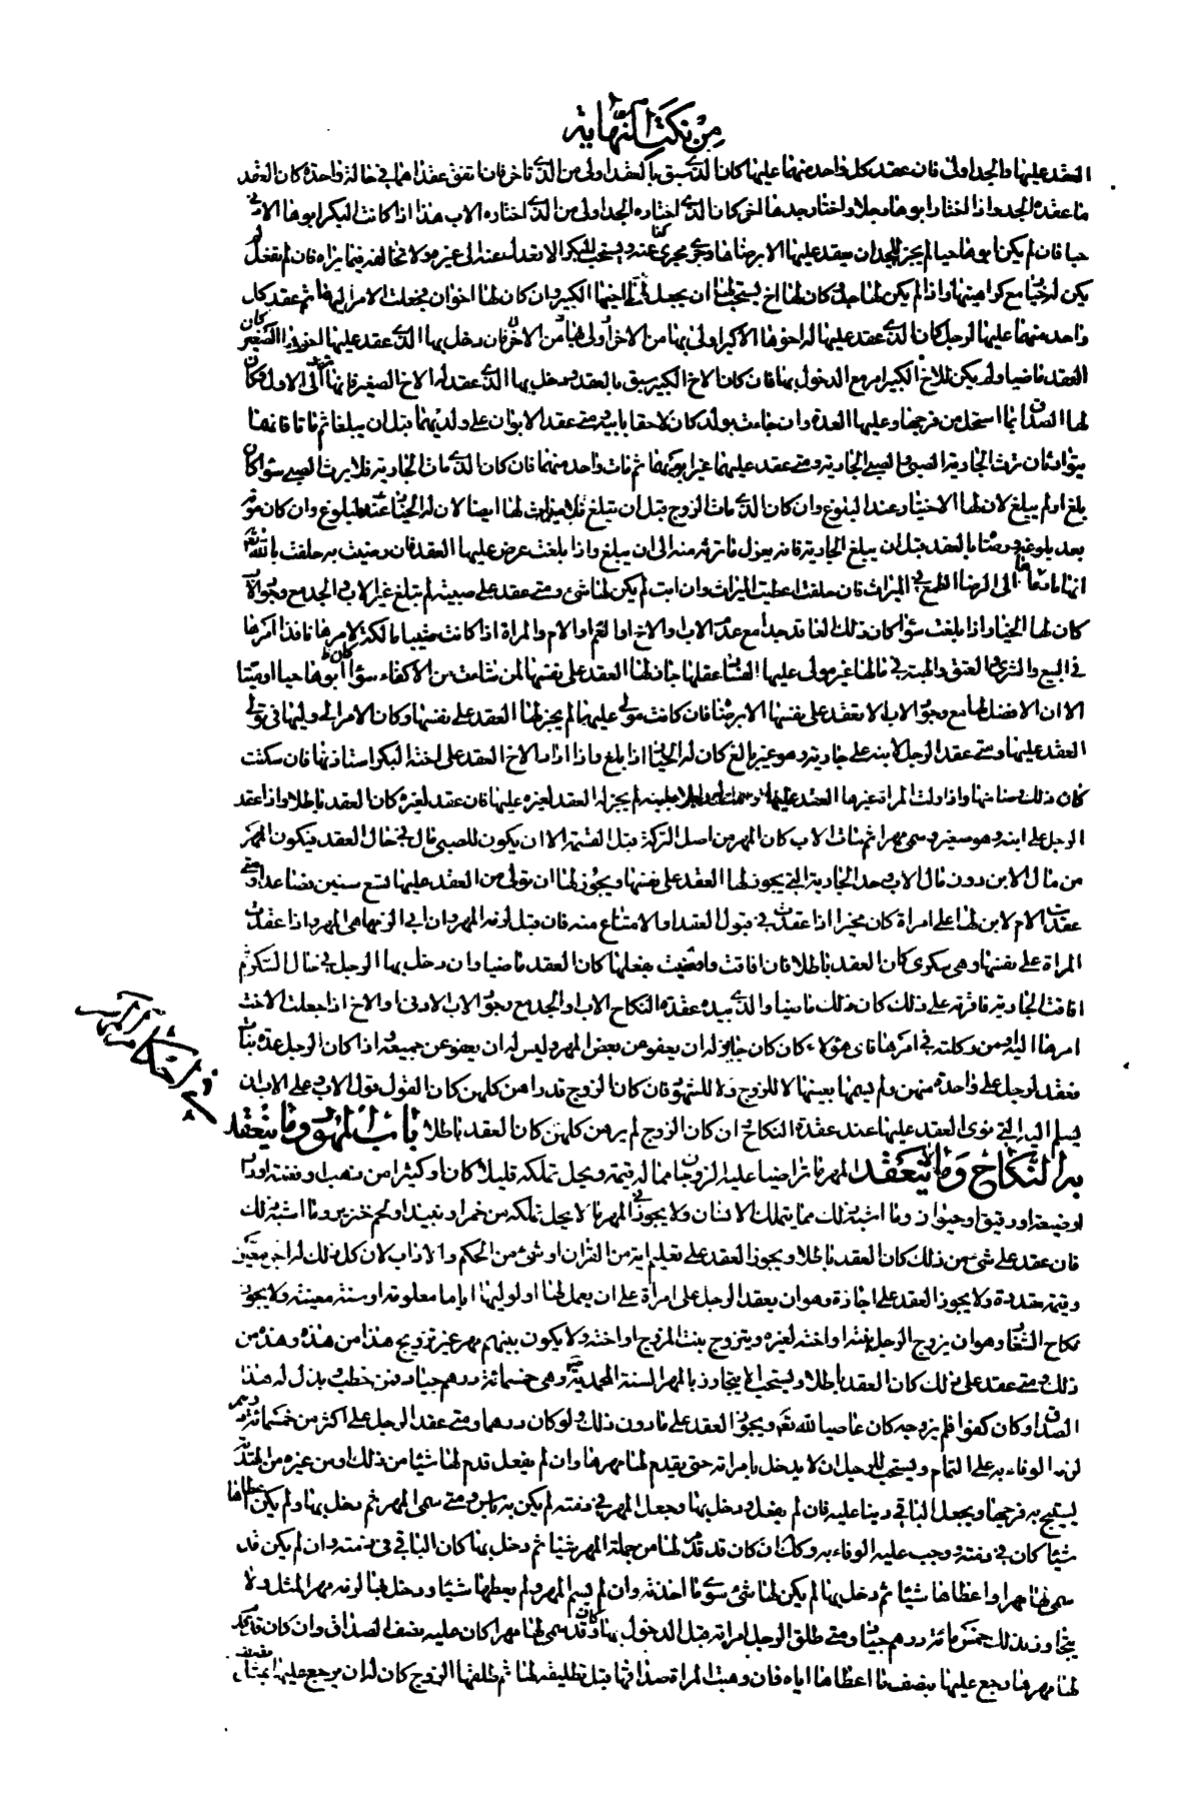 من نكت النهاية
العقد عليها والجد اولى فان عقد كل واحد منهما عليها كان الذى سبق بالعقد اولى من الذى تاخر فان اتفق عقداهما فى حالة واحدة كان العقد
ما عقده الجد واذا اختار ابوها رجلا واختار جدها اخر كان الذى اختاره الجد اولى من الذى اختاره الاب هذا اذا كانت البكر ابوها الادنى
حيا فان لم يكن ابوها حيا لم يجز للجد ان يعقد عليها الا برضاها وجرى مجرى غيره ويستحب للبكر الا تعدل عنه الى غيره ولا تخالفه فيما يراه فان لم تفعل لم
يكن له خيار مع كراهيتها واذا لم يكن لها جد وكان لها اخ يستحب لها ان يجعل الامر الى اخيها الكبير وان كان لها اخوان فجعلت الامر اليهما ثم عقد كل
واحد منهما عليها لرجل كان الذى عقد عليها له اخوها الاكبر اولى بها من الاخر فان دخل بها الذى عقد عليها اخوها الصغير كان
العقد ماضيا ولم يكن للاخ الكبير امر مع الدخول بها فان كان الاخ الكبير سبق بالعقد ودخل بها الذى عقد له الاخ الصغير فانها ترد الى الاول وكان
لها الصداق بما استحل من فرجها وعليها العدة وان جاءت بولد كان لاحقا بابيه ومتى عقد الابوان على ولديهما قبل ان يبلغا ثم ماتا فانهما
يتوارثان ترث الجارية الصبى والصبى الجارية ومتى عقد عليهما غير ابويهما ثم مات واحد منهما فان كان الذى مات الجارية فلا يرث الصبى سواء كان
بلغ او لم يبلغ لان لها الاختيار عند البلوغ وان كان الذى مات الزوج قبل ان تبلغ فلا ميراث لها ايضا لان له الخيار عند البلوغ وان كان موته
بعد بلوغه ورضاه بالعقد قبل ان يبلغ الجارية فانه يعزل ما ترثه منه الى ان يبلغ واذا بلغت عرض عليها العقد فان رضيت به حلفت بالله تعالى
انها ما دعاها الى الرضا الطمع فى الميراث فان حلفت اعطيت الميراث وان ابت لم يكن لها شئ ومتى عقد على صبية لم تبلغ غير الاب والجد مع وجود الاب
كان لها الخيار اذا بلغت سواء كان ذلك العاقد جدا مع عدم الاب او الاخ او العم او الام والمراة اذا كانت ثيبا مالكة لامرها نافذا امرها
فى البيع والشرى والعتق والهبة فى مالها غير مولى عليها لفساد عقلها جاز لها العقد على نفسها لمن شاءت من الاكفاء سواء كان ابوها حيا او ميتا
الا ان الافضل لها مع وجود الاب الا تعقد على نفسها الا برضاه فان كانت مولى عليها لم يجز لها العقد على نفسها وكان الامر الى وليها فى تولى
العقد عليها ومتى عقد الرجل لابنه على جارية وهو غير بالغ كان له الخيار اذا بلغ واذا اراد الاخ العقد على اخته البكر استاذنها فان سكتت
كان ذلك رضا منها واذا ولت المراة غيرها العقد عليها وسمت له رجلا بعينه لم يجز له العقد لغيره عليها فان عقد لغيره كان العقد باطلا واذا عقد
الرجل على ابنه وهو صغير وسمى مهرا ثم مات الاب كان المهر من اصل التركة قبل القسمة الا ان يكون للصبى مال فى حال العقد فيكون المهر
من مال الابن دون مال الاب وحد الجارية التى يجوز لها العقد على نفسها ويجوز لها ان تولى من العقد عليها تسع سنين فصاعدا ومتى
عقدت الام لابن لها على امراة كان مخيرا اذا عقدت فى قبول العقد او الامتناع منه فان قبل لزمه المهر وان ابى لزمها هى المهر واذا عقدت
المراة على نفسها وهى سكرى كان العقد باطلا فان افاقت ورضيت بفعلها كان العقد ماضيا وان دخل بها الرجل فى حال السكر ثم
افاقت الجارية فاقرته على ذلك كان ذلك ماضيا والذى بيده عقدة النكاح الاب والجد مع وجود الاب الادنى والاخ اذا جعلت الاخت
امرها اليه ومن وكلته فى امرها فاى هؤلاء كان كان جايز له ان يعفو عن بعض المهر وليس له ان يعفو عن جميعه واذا كان لرجل عدة بنات
فعقد لرجل على واحدة منهن ولم يسمها بعينها لا للزوج ولا للشهود فان كان الزوج قد راهن كلهن كان القول قول الاب وعلى الاب ان
يسلم اليه التى نوى العقد عليها عند عقدة النكاح وان كان الزوج لم يرهن كلهن كان العقد باطلا باب المهور وما ينعقد
به النكاح وما لا ينعقد المهر ما تراضيا عليه الزوجان مما له قيمة ويحل تملكه قليلا كان او كثيرا من ذهب او فضة او دار
او ضيعة او رقيق او حيوان وما اشبه ذلك مما يتملك الانسان ولا يجوز فى المهر ما لا يحل تملكه من خمر او نبيذ او لحم خنزير وما اشبه ذلك
فان عقد على شئ من ذلك كان العقد باطلا ويجوز العقد على تعليم اية من القران او شئ من الحكم والاداب لان كل ذلك له اجر معين
وقيمة مقدرة ولا يجوز العقد على اجارة وهو ان يعقد الرجل على امراة على ان يعمل لها او لوليها اياما معلومة او سنة معينة ولا يجوز
نكاح الشغار وهو ان يزوج الرجل بنته او اخته لغيره ويتزوج بنت المزوج او اخته ولا يكون بينهم مهر غير تزويج هذا من هذه وهذه من
ذلك ومتى عقد على ذلك كان العقد باطلا ويستحب الا يتجاوز بالمهر السنة المحمدية وهى خمسمائة درهم جياد فمن خطب وبذل له هذا
الصداق وكان كفوا فلم يزوجه كان عاصيا لله تعالى ويجوز العقد على ما دون ذلك ولو كان درهما ومتى عقد الرجل على اكثر من خمسمائة درهم
لزمه الوفاء به على التمام ويستحب للرجل ان لا يدخل بامراته حتى يقدم لها مهرها وان لم يفعل قدم لها شيئا من ذلك او من غيره من الهدية
يستبيح به فرجها ويجعل الباقى دينا عليه فان لم يفعل ودخل بها وجعل المهر فى ذمته لم يكن به باس ومتى سمى المهر ثم دخل بها ولم يكن اعطاها
شيئا كان فى ذمته ووجب عليه الوفاء به وكذلك ان كان قد قدم لها من جملة المهر شيئا ثم دخل بها كان الباقى فى ذمته وان لم يكن قد
سمى لها مهرا واعطاها شيئا ثم دخل بها لم يكن لها شئ سوى ما اخذته وان لم يسم المهر ولم يعطها شيئا ودخل بها لزمه مهر المثل ولا
يتجاوز بذلك خمس مائة درهم جياد ومتى طلق الرجل امراته قبل الدخول بها وكان قد سمى لها مهرا كان عليه نصف الصداق وان كان قد قدم
لها مهرها رجع عليها بنصف ما اعطاها اياه فان وهبت المراة صداقها قبل تطليقه لها ثم طلقها الزوج كان له ان يرجع عليها بمثل نصفه
فى احكام المهر